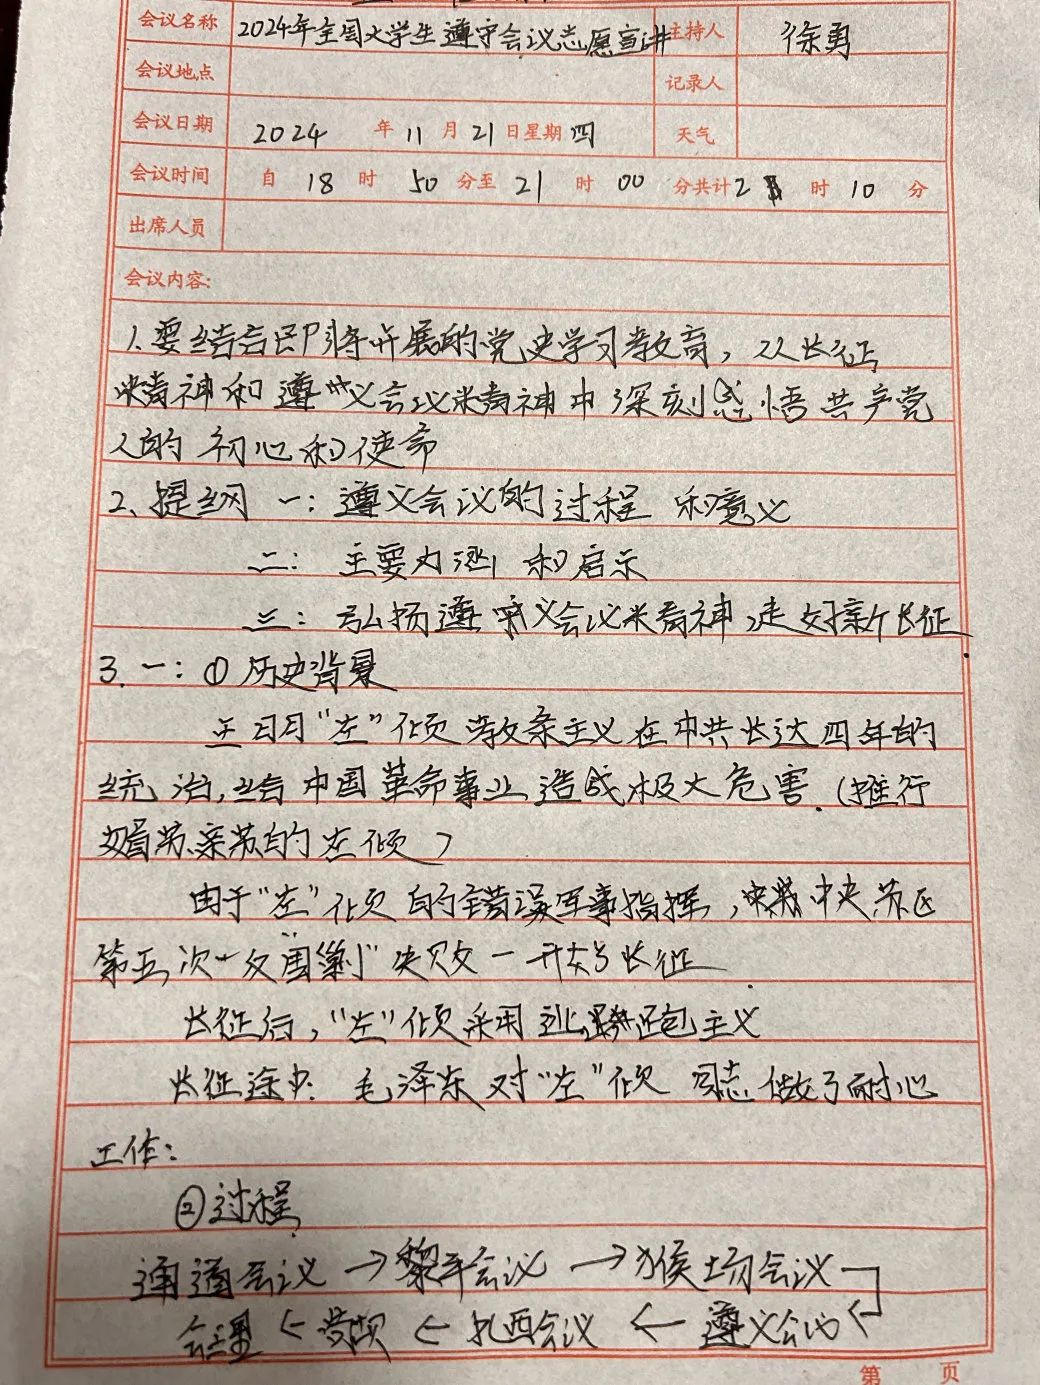 会议名称 2024年全国大学生遵守会议志愿宣讲 主持人 徐勇
会议地点 记录人
会议日期 2024 年 11 月 21 日星期 四 天气
会议时间 自 18 时 50 分至 21 时 00 分共计 2 时 10 分
出席人员
会议内容:
1.要结合即将开展的党史学习教育,从长征
精神和遵义会议精神中深刻感悟共产党
人的初心和使命
2、提纲 一:遵义会议的过程 和意义
二: 主要内涵 和启示
三: 弘扬遵义会议精神,走好新长征.
3.一:①历史背景
王明"左"倾教条主义在中共长达四年的
统治,给中国革命事业造成极大危害.(推行
亲苏的左倾)
由于"左"倾的错误军事指挥,中央苏区
第五次"反围剿"失败一开始长征.
长征后,"左"倾采用逃跑主义
长征途中: 毛泽东对"左"倾 同志做了耐心
工作:
②过程
通道会议→黎平会议→猴场会议
会理←←扎西会议←遵义会议
第 页